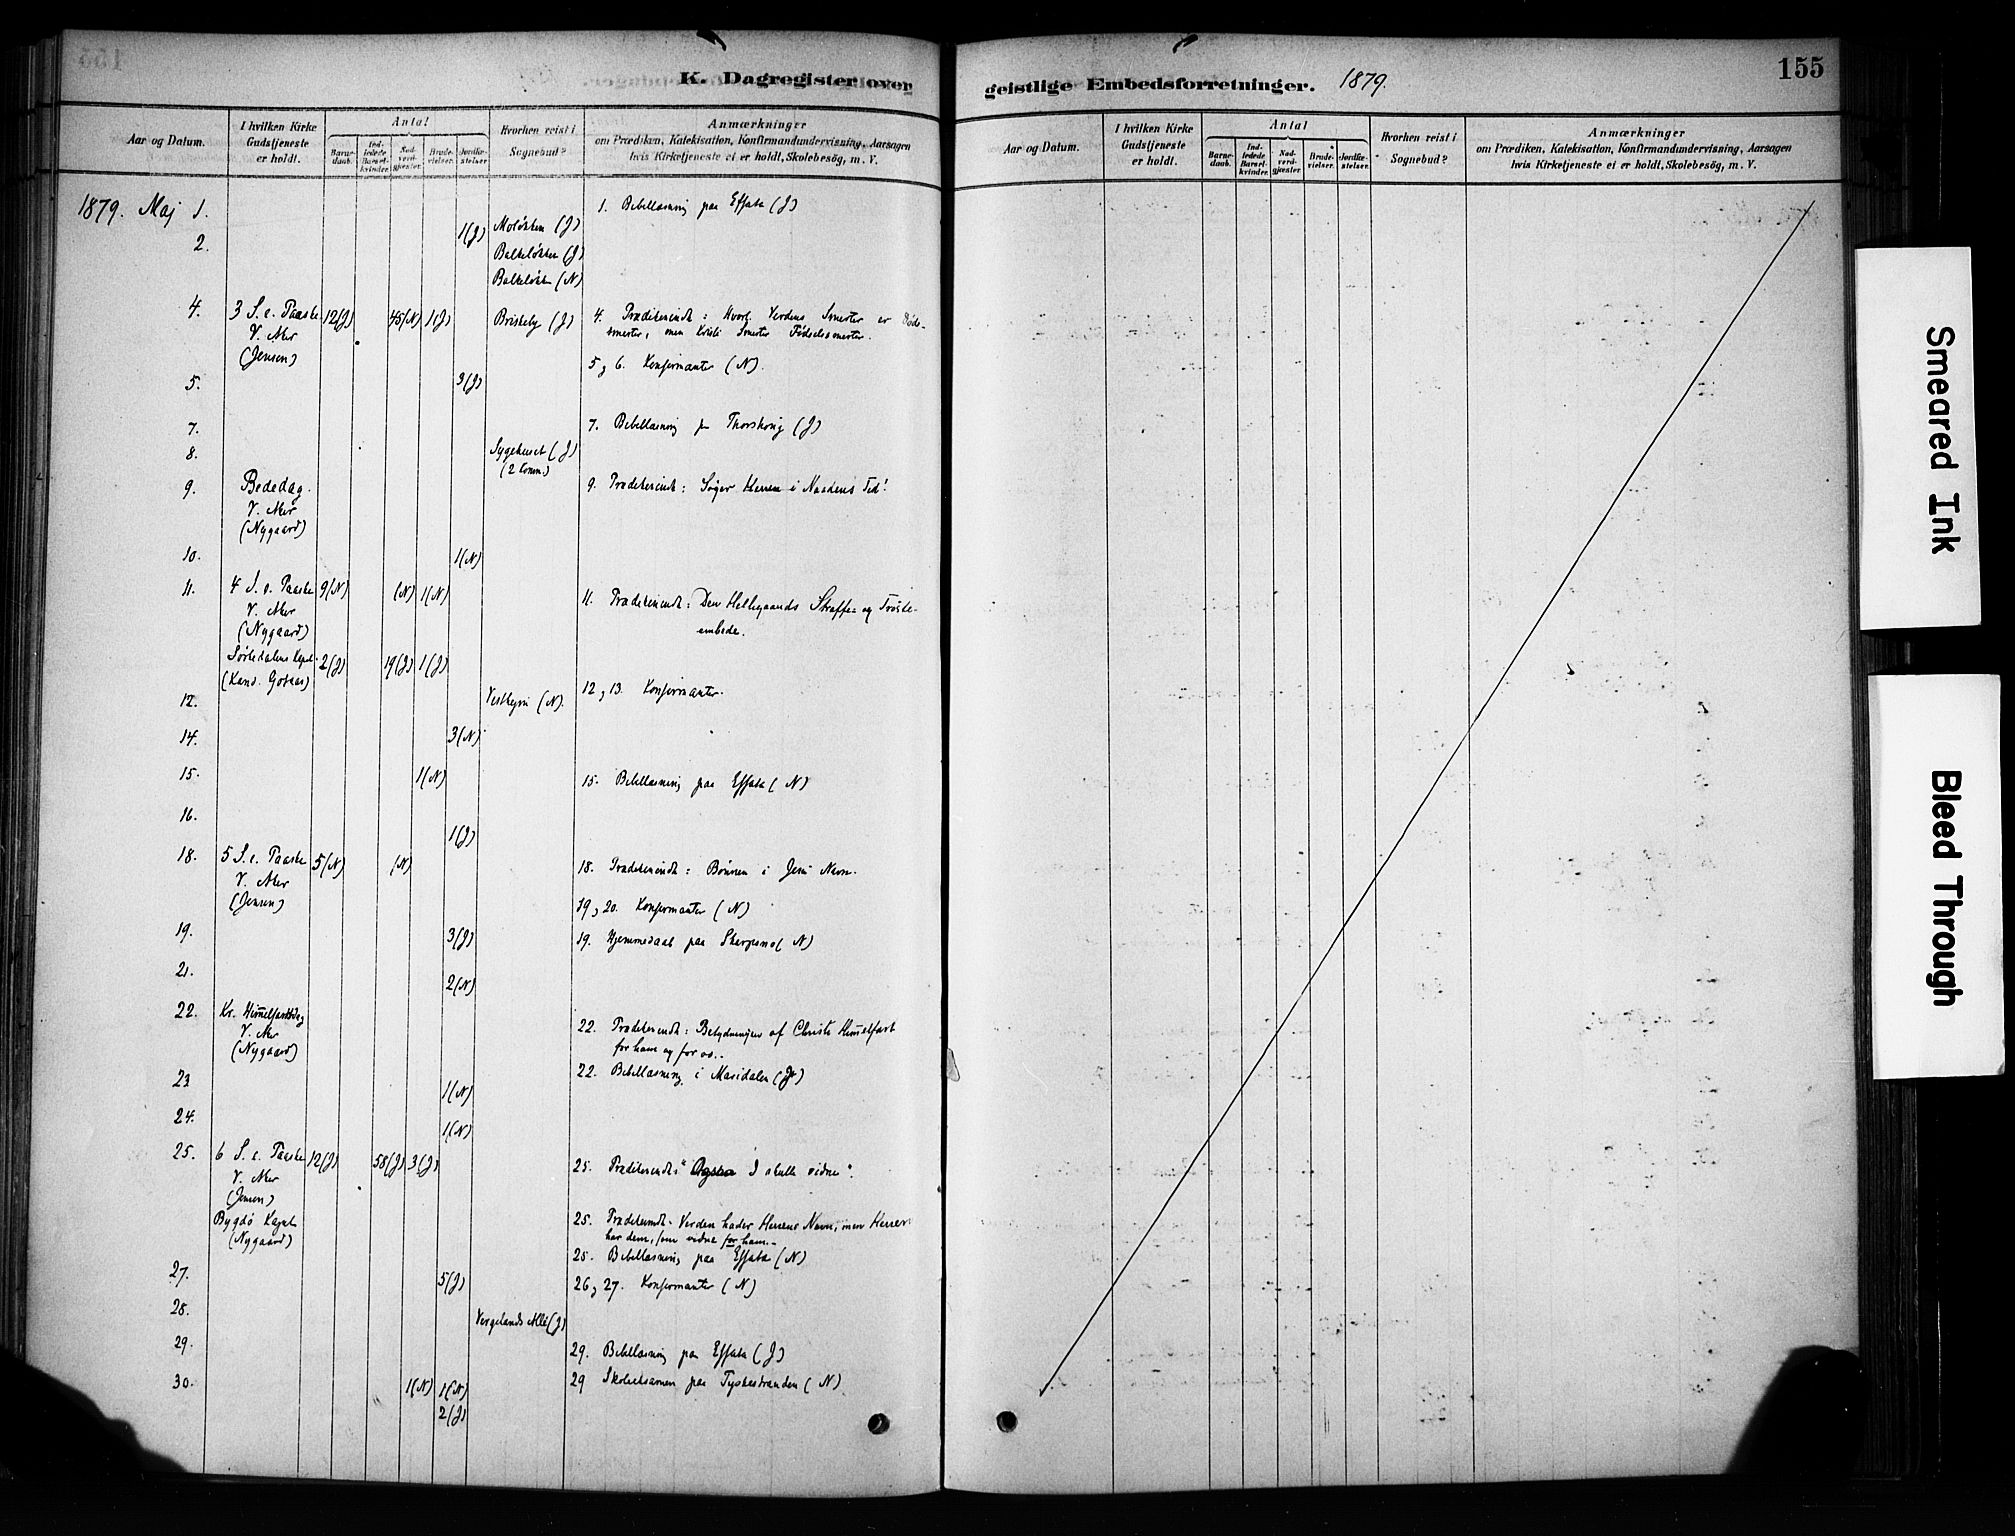 K. Dagregister over geistlige Embedsforretninger. 1879. 155
Aar og Datum.
I hvilken Kirke Gudstjeneste er holdt.
Antal
Barne-daab.
Ind-ledede Barsel-kvinder.
Nad-verd-gjester.
Brude-vielser.
Jordfæ-stelser
Hvorhen reist i Sognebud?
Anmærkninger
om Prædiken, Katekisation, Konfirmandundervisning, Aarsagen
hvis Kirketjeneste ei er holdt, Skolebesøg, m. V.
Aar og Datum.
I hvilken Kirke Gudstjeneste er holdt.
Antal
Barne-daab.
Ind-ledede Barsel-kvinder.
Nad-verd-gjester.
Brude-vielser.
Jordfæ-stelser.
Hvorhen reist i Sognebud?
Anmærkninger
om Prædiken, Katekisation, Konfirmandundervisning, Aarsagen
hvis Kirketjeneste ei er holdt, Skolebesøg, m. V.
1879. Maj 1. 1. Bibellæsning paa Effata (J)
2. 1(J) Moløkken (J)
Balkeløkken (J)
Balkeløkken (N)
4. 3 S. e. Paaske 12(J) 45(N) 1(J) Briskeby (J) 4. Prædikenindh: Hvorl. Verdens Smerter er Døds-
V. Aker smerter, men Kristi Smerter Fødselssmerter.
(Jensen) 5, 6. Konfirmanter (N).
5. 3(J)
7. 7. Bibellæsning paa Thorshaug (J)
8. Sygehuset (J)
(2 Comm.)
9. Bededag. 9. Prædikenindh: Søger Herren i Naadens Tid!
V. Aker
(Nygaard)
10. 1(N)
11. 4 S. e. Paaske 9(N) (N) 1(N) 11. Prædikenindh: Den Helligaands Straffe- og Trøste-
V. Aker embede.
(Nygaard)
Sørkedalens Kapel 2(J) 19(J) 1(J)
(Kand. Gotaas)
12. Vestheim (N). 12, 13. Konfirmanter.
14. 3(N)
15. 1(N) 15. Bibellæsning paa Effata (N)
16. 1(J)
18. 5 S. e. Paaske 5(N) (N) 18. Prædikenindh: Bønnen i Jesu Navn.
V. Aker
(Jensen) 19, 20. Konfirmanter (N)
19. 3(J) 19. Hjemmedaab paa Skarpsno (N)
21. 2(N)
22. Kr. Himmelfartsdag 22. Prædikenindh: Betydningen af Christi Himmelfart
V. Aker for ham og for os.
(Nygaard) 22. Bibellæsning i Maridalen (J)
23 1(N)
24. 1(N)
25. 6 S. e. Paaske 12(J) 58(J) 3(J) 25. Prædikenindh: "I skulle vidne".
V. Aker
(Jensen)
Bygdø Kapel 25. Prædikenindh. Verden hader Herrens Navn, men Herren
(Nygaard) har dem, som vidne for ham.
25. Bibellæsning paa Effata (N)
27. 5(J) 26, 27. Konfirmanter (N)
28. Vergelands Allé (J)
29. 29. Bibellæsning paa Effata (J)
30. 1(N) 1(N) 29 Skoleeksamen paa Tyskestranden (N)
2(J)
Smeared Ink
Bleed Through